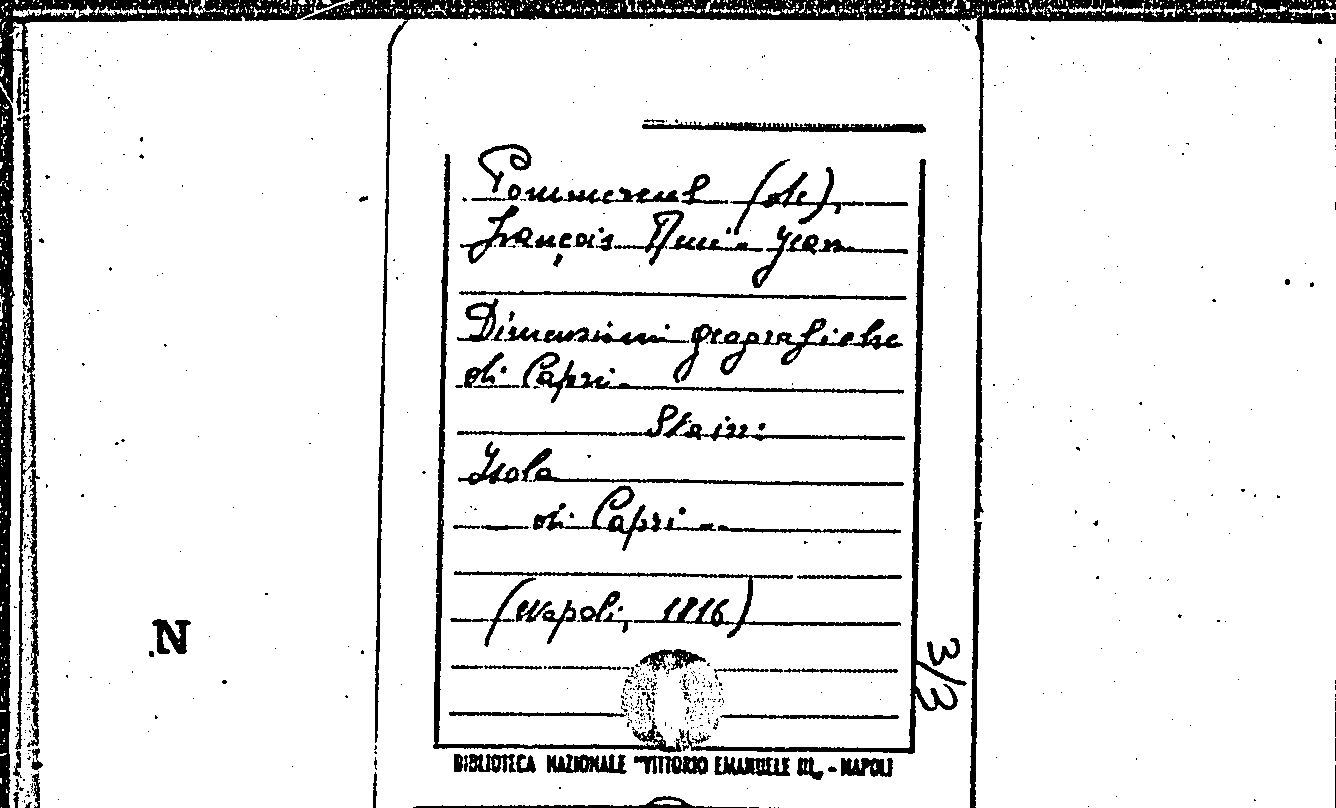 Pommereul (de),
François René Jean
Dimensioni geografiche
di Capri.
Sta in:
Isola
di Capri
(Napoli, 1816)
3/3
N
BIBLIOTECA NAZIONALE "VITTORIO EMANUELE III„ - NAPOLI